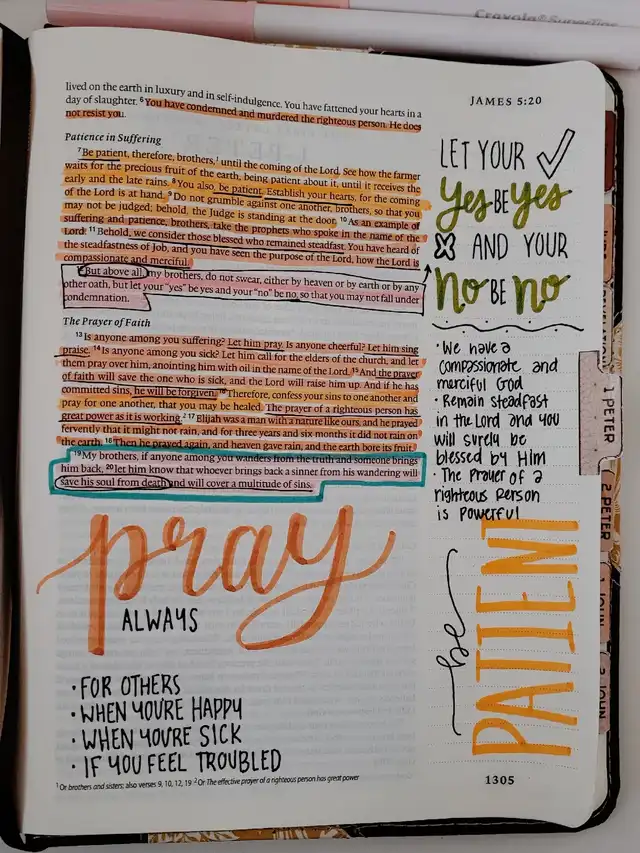 Crayola® SuperTips
JAMES 5:20
lived on the earth in luxury and in self-indulgence. You have fattened your hearts in a
day of slaughter. 6 You have condemned and murdered the righteous person. He does
not resist you.
Patience in Suffering
7 Be patient, therefore, brothers,1 until the coming of the Lord. See how the farmer
waits for the precious fruit of the earth, being patient about it, until it receives the
early and the late rains. 8 You also, be patient. Establish your hearts, for the coming
of the Lord is at hand. 9 Do not grumble against one another, brothers, so that you
may not be judged; behold, the Judge is standing at the door. 10 As an example of
suffering and patience, brothers, take the prophets who spoke in the name of the
Lord. 11 Behold, we consider those blessed who remained steadfast. You have heard of
the steadfastness of Job, and you have seen the purpose of the Lord, how the Lord is
compassionate and merciful.
But above all, my brothers, do not swear, either by heaven or by earth or by any
other oath, but let your "yes" be yes and your "no" be no, so that you may not fall under
condemnation.
The Prayer of Faith
13 Is anyone among you suffering? Let him pray. Is anyone cheerful? Let him sing
praise. 14 Is anyone among you sick? Let him call for the elders of the church, and let
them pray over him, anointing him with oil in the name of the Lord. 15 And the prayer
of faith will save the one who is sick, and the Lord will raise him up. And if he has
committed sins, he will be forgiven. 16 Therefore, confess your sins to one another and
pray for one another, that you may be healed. The prayer of a righteous person has
great power as it is working.2 17 Elijah was a man with a nature like ours, and he prayed
fervently that it might not rain, and for three years and six months it did not rain on
the earth. 18 Then he prayed again, and heaven gave rain, and the earth bore its fruit.
19 My brothers, if anyone among you wanders from the truth and someone brings
him back, 20 let him know that whoever brings back a sinner from his wandering will
save his soul from death and will cover a multitude of sins.
pray
ALWAYS
• FOR OTHERS
• WHEN YOU'RE HAPPY
• WHEN YOU'RE SICK
• IF YOU FEEL TROUBLED
1 Or brothers and sisters; also verses 9, 10, 12, 19 2 Or The effective prayer of a righteous person has great power
LET YOUR
Yes BE yes
AND YOUR
No BE no
• We have a
compassionate and
merciful God
• Remain steadfast
in the Lord and you
will surely be
blessed by Him
• The Prayer of a
righteous Person
is powerful
be
PATIENT
1305
1 PETER
2 PETER
1 JOHN
2 JOHN